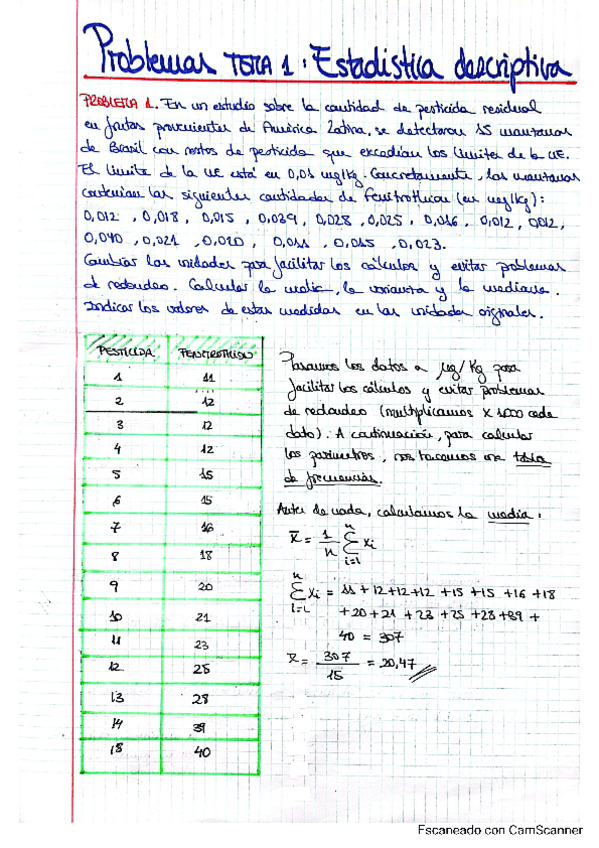 Problemas TEMA 1: Estadística descriptiva
PROBLEMA 1. En un estudio sobre la cantidad de pesticida residual
en frutas provenientes de América Latina, se detectaron 15 manzanas
de Brasil con restos de pesticida que excedían los límites de la UE.
El límite de la UE está en 0,01 mg/kg. Concretamente, las manzanas
contenían las siguientes cantidades de fenitrothion (en mg/kg):
0,012 , 0,018 , 0,015 , 0,039 , 0,028 , 0,025 , 0,016 , 0,012 , 0,012,
0,040 , 0,021 , 0,020 , 0,011 , 0,015 , 0,023.
Cambiar las unidades para facilitar los cálculos y evitar problemas
de redondeo. Calcular la media, la varianza y la mediana.
Indicar los valores de estas medidas en las unidades originales.
PESTICIDA FENITROTHION
1 11
2 12
3 12
4 12
5 15
6 15
7 16
8 18
9 20
10 21
11 23
12 25
13 28
14 39
15 40
Pasamos los datos a µg/Kg para
facilitar los cálculos y evitar problemas
de redondeo (multiplicamos x 1000 cada
dato). A continuación, para calcular
los parámetros, nos hacemos una tabla
de frecuencias.
Antes de nada, calculamos la media:
x̄ = 1/n Σ xi
n
i=1
n
Σ xi = 11 + 12+12+12 +15 +15 +16 +18
i=1
+20+21 +23 +25 +28+39 +
40 = 307
x̄ = 307/15 = 20,47
Escaneado con CamScanner